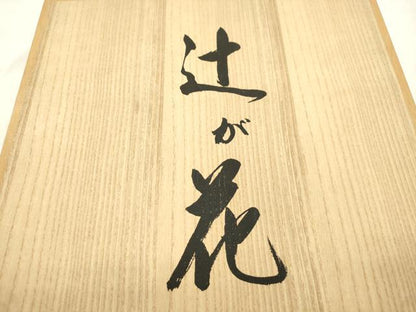 辻が花